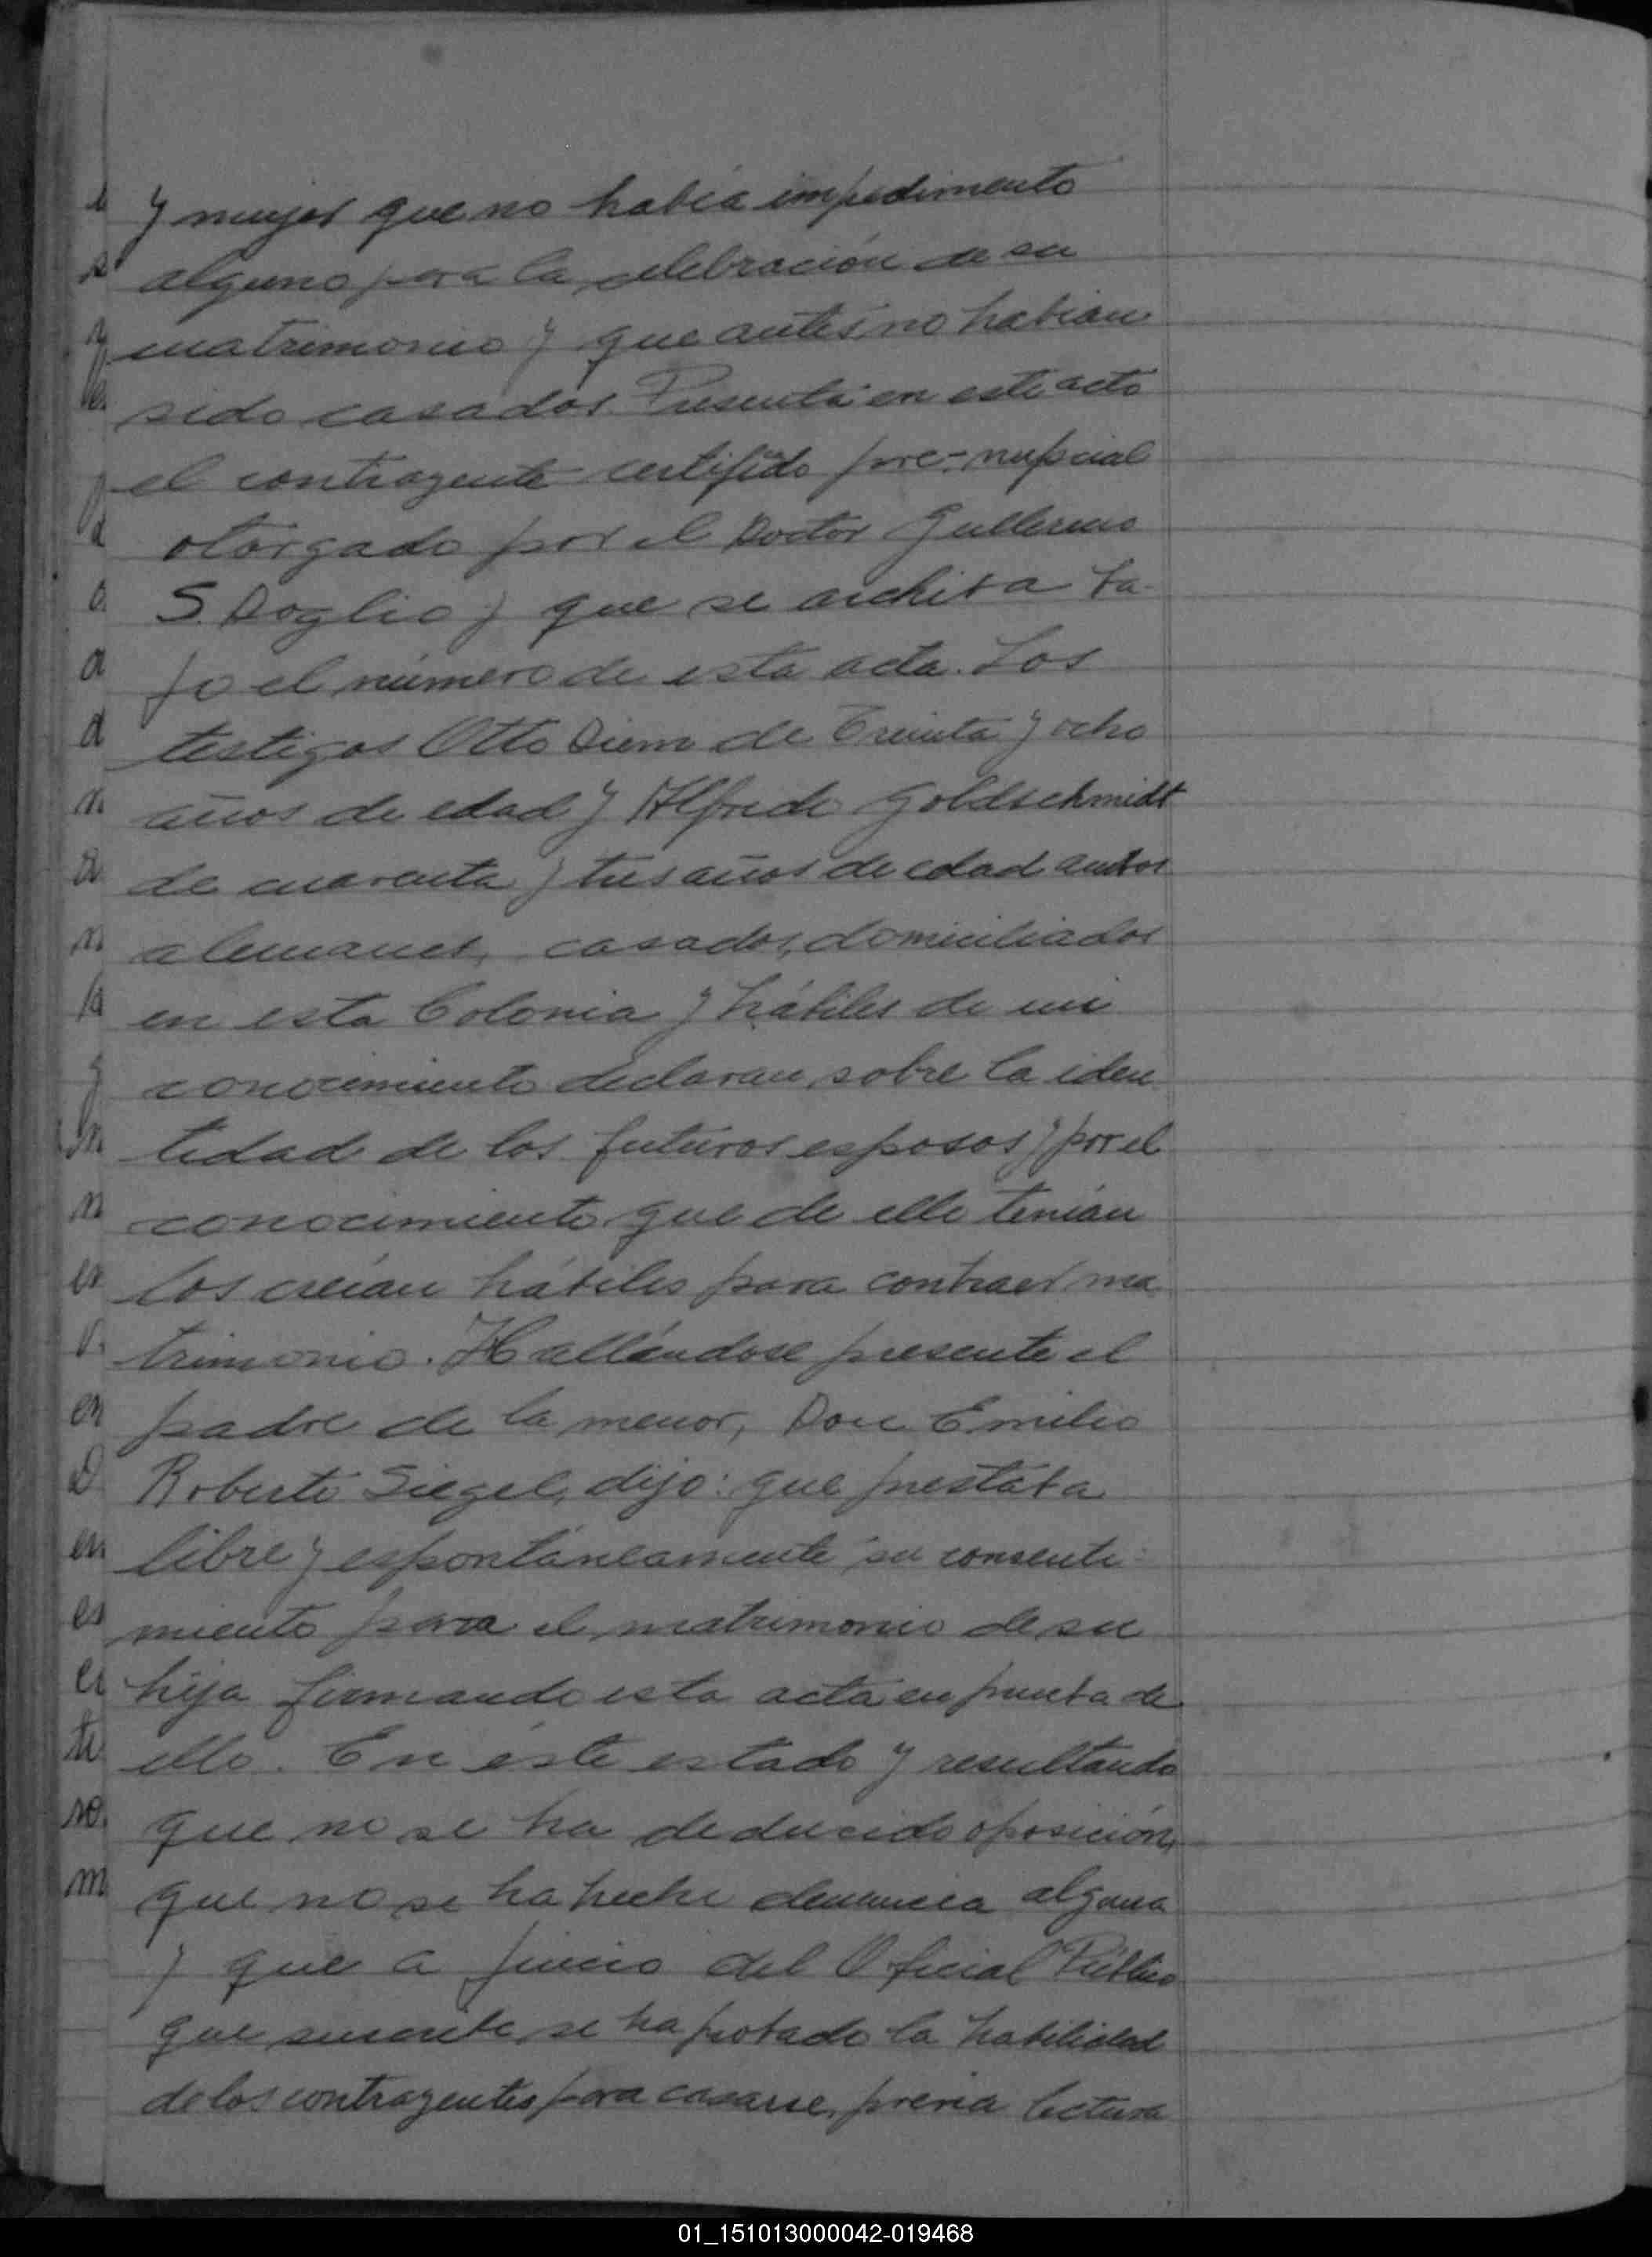 y mujer que no había impedimento
alguno para la celebración de su
matrimonio y que antes no habían
sido casados. Presenta en este acto
el contrayente certificado pre-nupcial
otorgado por el Doctor Guillermo
S. Doglio y que se archiva ba-
jo el número de esta acta. Los
testigos Otto Diem de treinta y ocho
años de edad y Alfredo Goldschmidt
de cuarenta y tres años de edad ambos
alemanes, casados, domiciliados
en esta Colonia y hábiles de mi
conocimiento declaran sobre la iden
tidad de los futuros esposos y por el
conocimiento que de ello tenían
los creían hábiles para contraer ma
trimonio. Hallándose presente el
padre de la menor, Don Emilio
Roberto Siegel, dijo: que prestaba
libre y espontáneamente su consenti-
miento para el matrimonio de su
hija firmando esta acta en prueba de
ello. En éste estado y resultando
que no se ha deducido oposición,
que no se ha hecho denuncia alguna
y que a juicio del Oficial Público
que suscribe se ha probado la habilidad
de los contrayentes para casarse, previa lectura
01_151013000042-019468